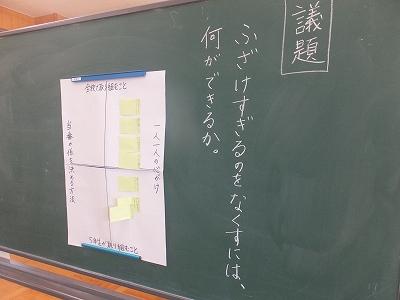 議題
ふざけすぎるのをなくすには、
何ができるか。
全校で取り組むこと
一人一人の心がけ
当番や係を決める方法
5年生が取り組むこと